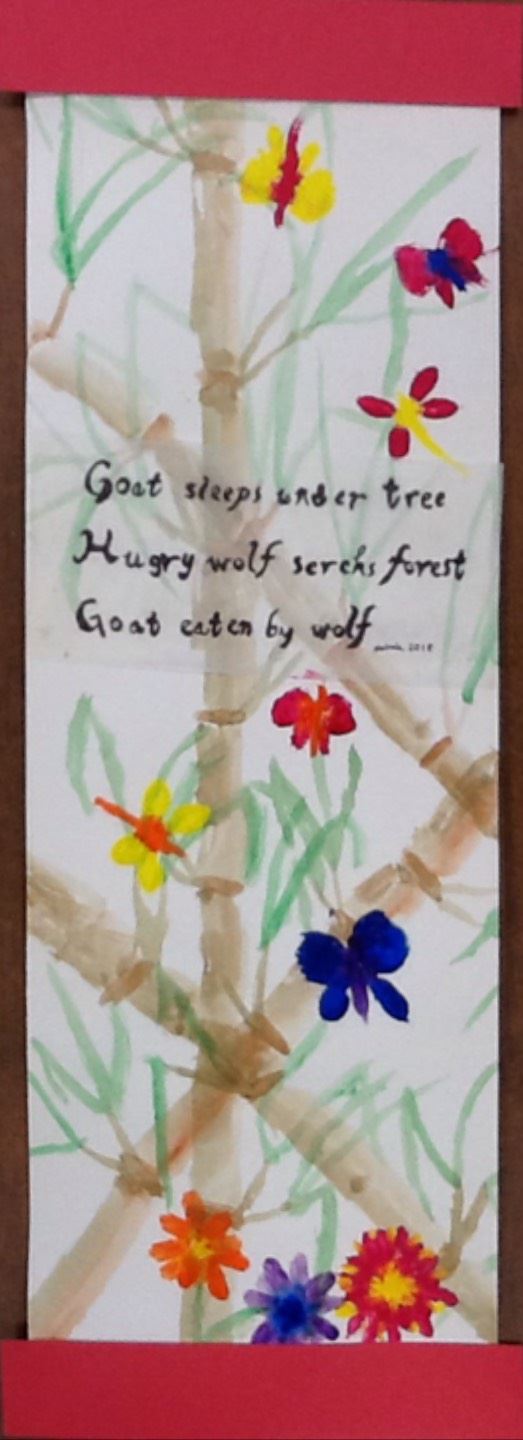 Goat sleeps under tree
Hugry wolf serchs forest
Goat eaten by wolf
2018